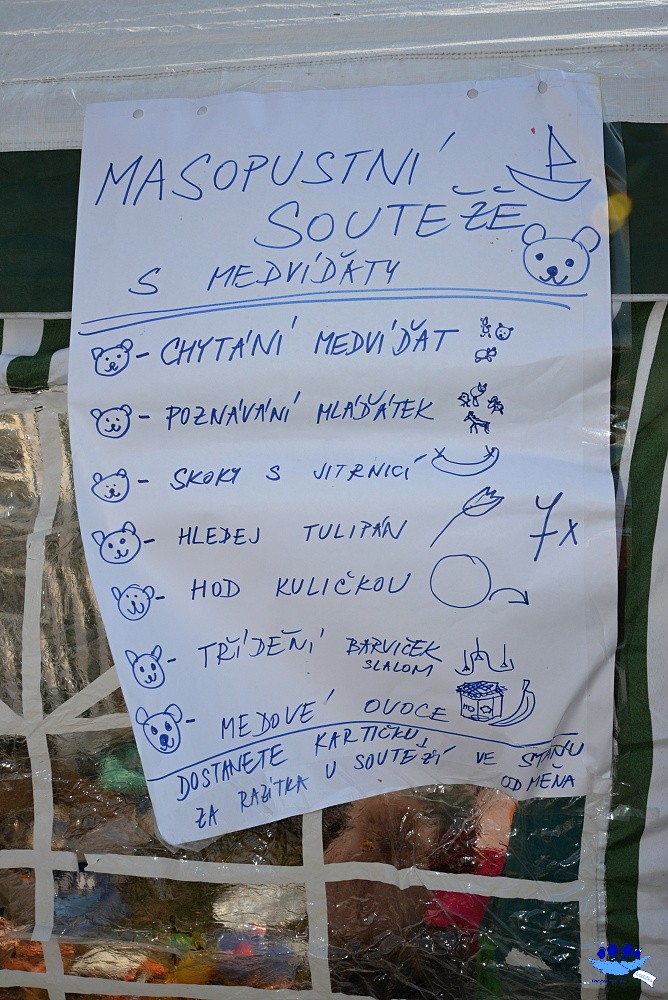 MASOPUSTNÍ
SOUTEŽE
S MEDVÍĎATY
- CHYTÁNÍ MEDVÍĎAT
- POZNÁVÁNÍ MLÁĎÁTEK
- SKOKY S JITRNICÍ
- HLEDEJ TULIPÁN
7x
- HOD KULIČKOU
- TŘÍDĚNÍ BARVIČEK
SLALOM
- MEDOVÉ OVOCE
DOSTANETE KARTIČKU,
ZA RAZÍTKA U SOUTEŽÍ VE STANU
ODMĚNA